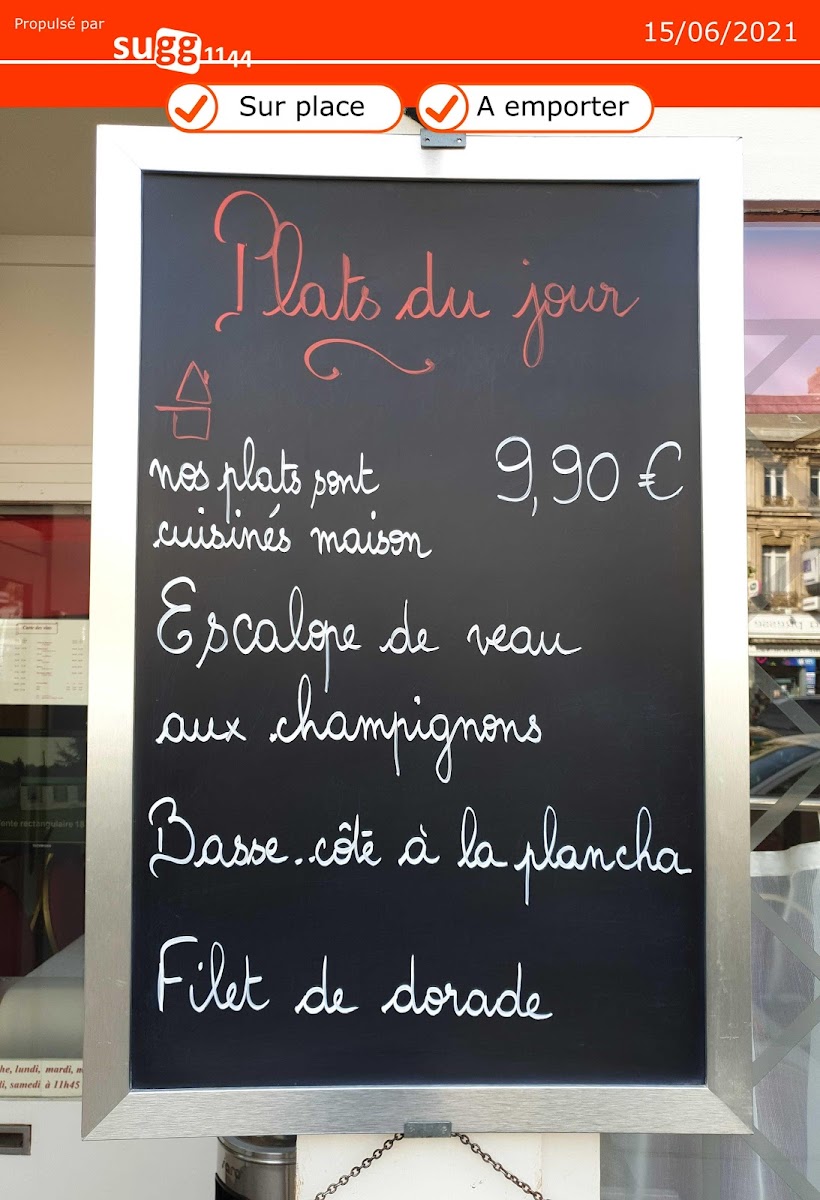 Propulsé par
sugg1144
15/06/2021
Sur place
A emporter
Plats du jour
nos plats sont 9,90 €
cuisinés maison
Escalope de veau
aux champignons
Basse-côte à la plancha
Filet de dorade
fonte rectangulaire 18
he, lundi, mardi, m
di, samedi à 11h45